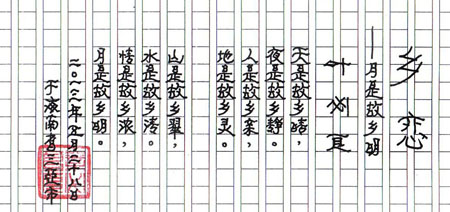 乡恋
——月是故乡明
叶
天是故乡晴，
夜是故乡静。
人是故乡亲，
地是故乡灵。
山是故乡翠，
水是故乡清。
情是故乡浓，
月是故乡明。
年五月二十八日
于海南省三亚市